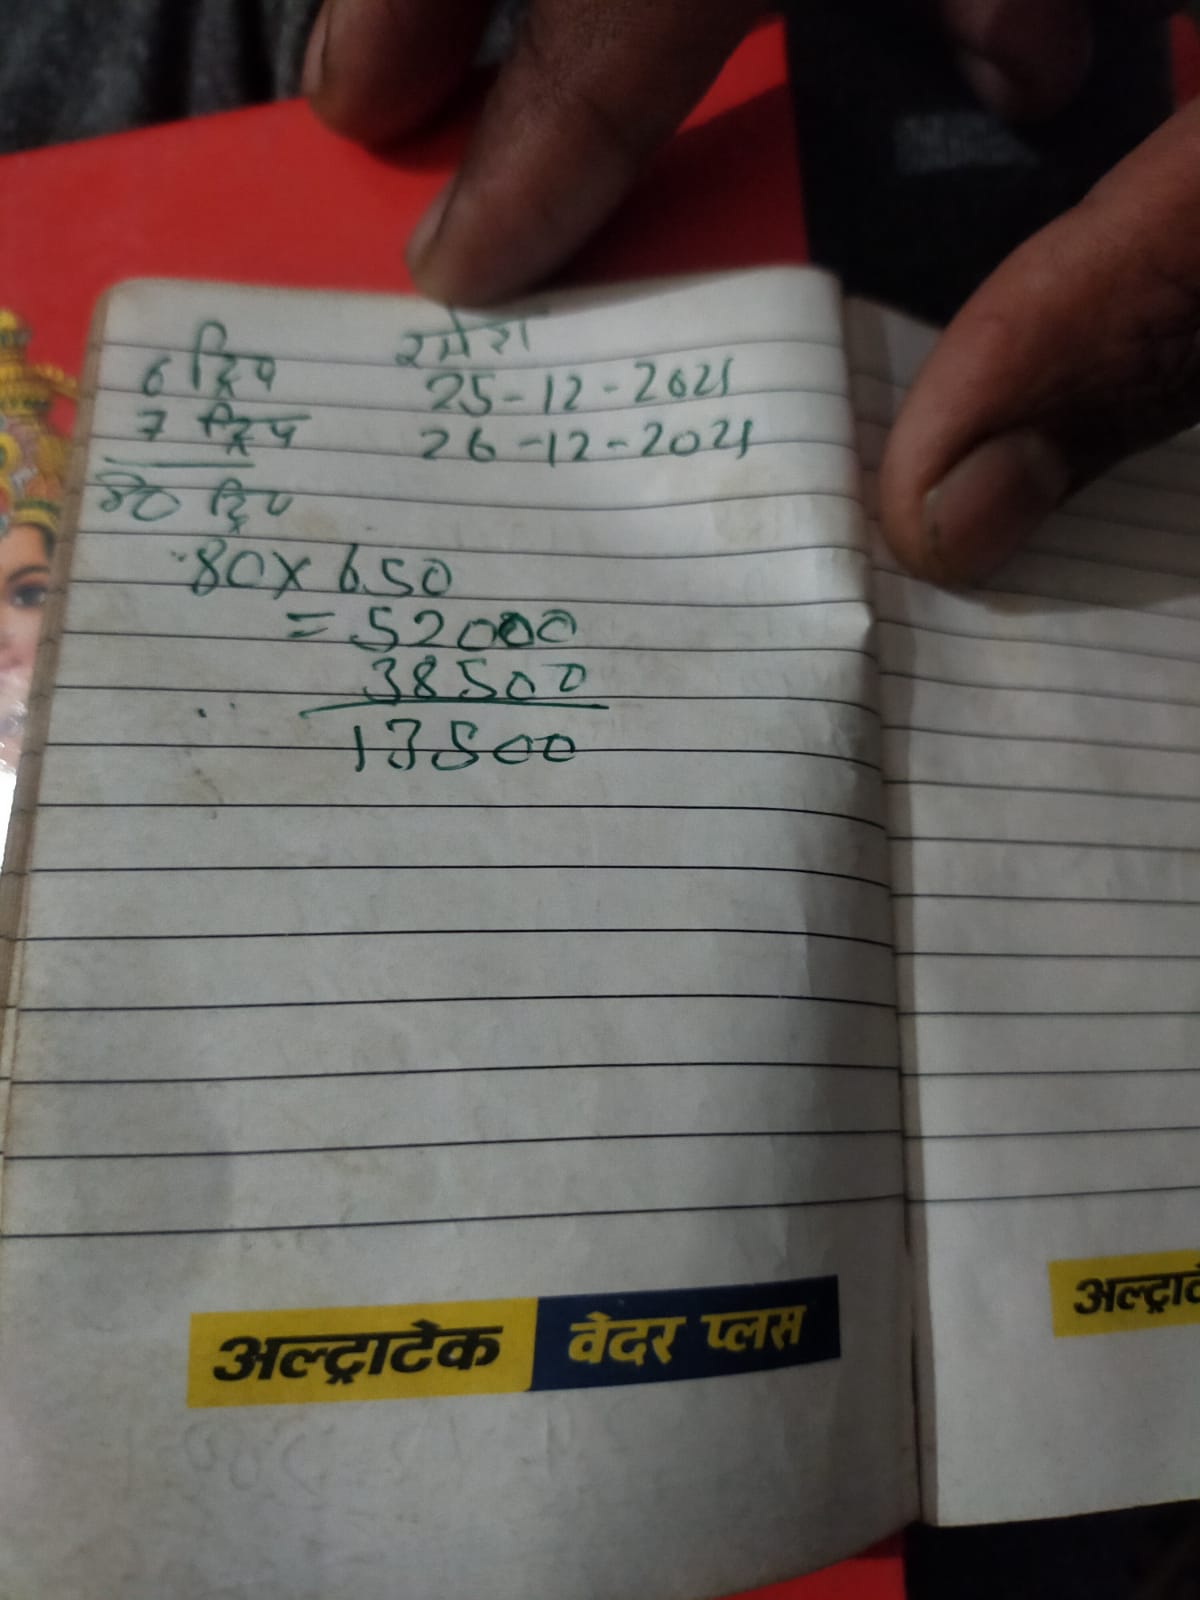 रमेश
6 ट्रिप 25-12-2021
7 ट्रिप 26-12-2021
८० ट्रिप
80 x 650
= 52000
38500
13500
अल्ट्राटेक वेदर प्लस
अल्ट्राटे